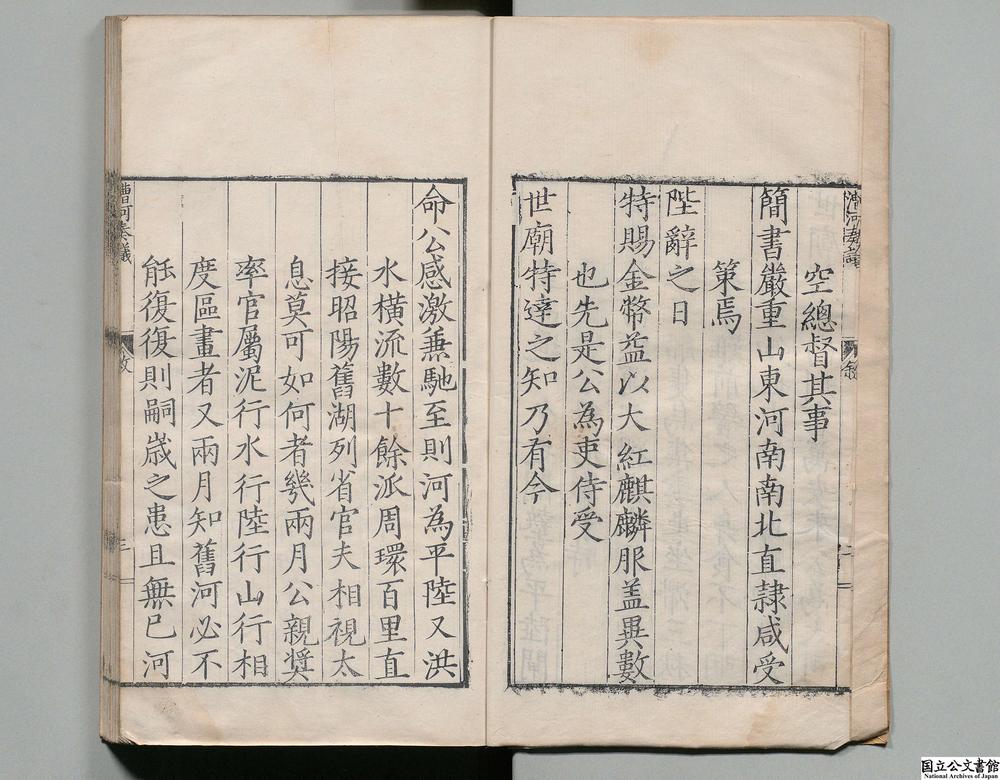 空總督其事
簡書嚴重山東河南南北直隸咸受
策焉
陛辭之日
特賜金幣益以大紅麒麟服盖異數
也先是公為吏侍受
世廟特達之知乃有今
命公感激兼馳至則河為平陸又洪
水橫流數十餘派周環百里直
接昭陽舊湖列省官夫相視太
息莫可如何者幾兩月公親獎
率官屬泥行水行陸行山行相
度區畫者又兩月知舊河必不
能復復則嗣歲之患且無已河
漕河奏議
三
国立公文書館
National Archives of Japan